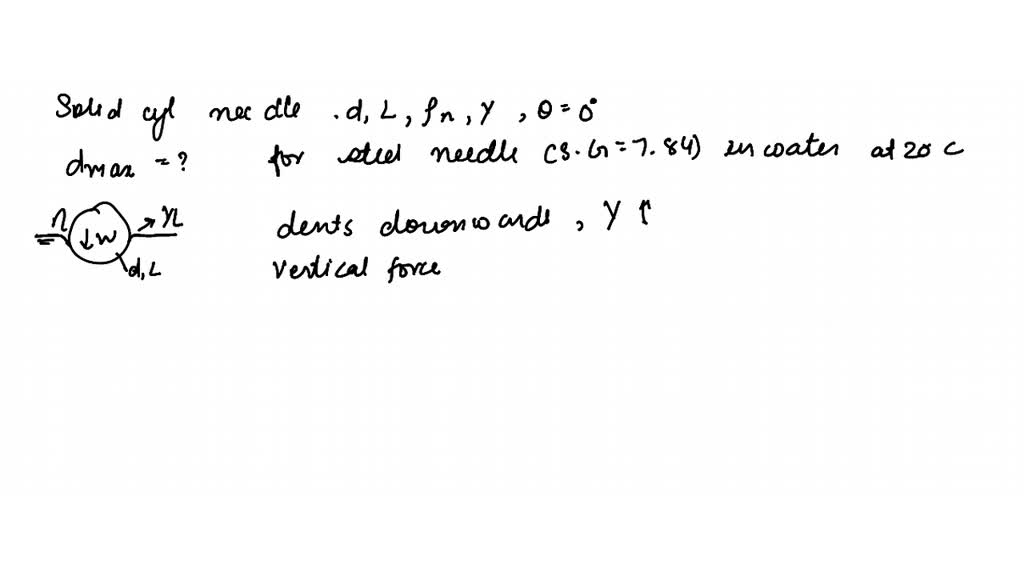 Solid cyl needle . d, L, ρn, Y , θ = 0°
dmax = ? for steel needle (S.G = 7.84) in water at 20 C
YL
↓W
d, L
dents downwards , Y ↑
Vertical force